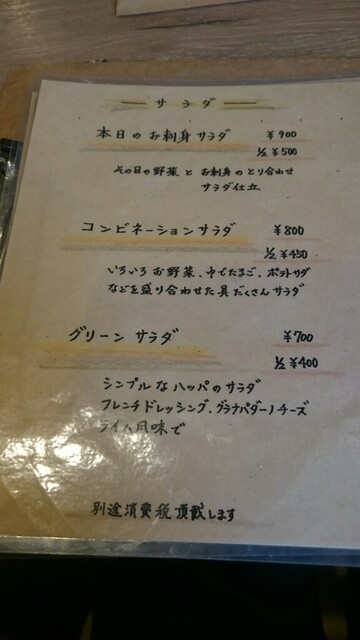 サラダ
本日のお刺身サラダ ¥900
1/2 ¥500
その日の野菜とお刺身のとり合わせ
サラダ仕立
コンビネーションサラダ ¥800
1/2 ¥450
いろいろお野菜、ゆでたまご、ポテトサラダ
などを盛り合わせた具だくさんサラダ
グリーンサラダ ¥700
1/2 ¥400
シンプルなハッパのサラダ
フレンチドレッシング、グラナパダーノチーズ
ライム風味で
別途消費税頂戴します